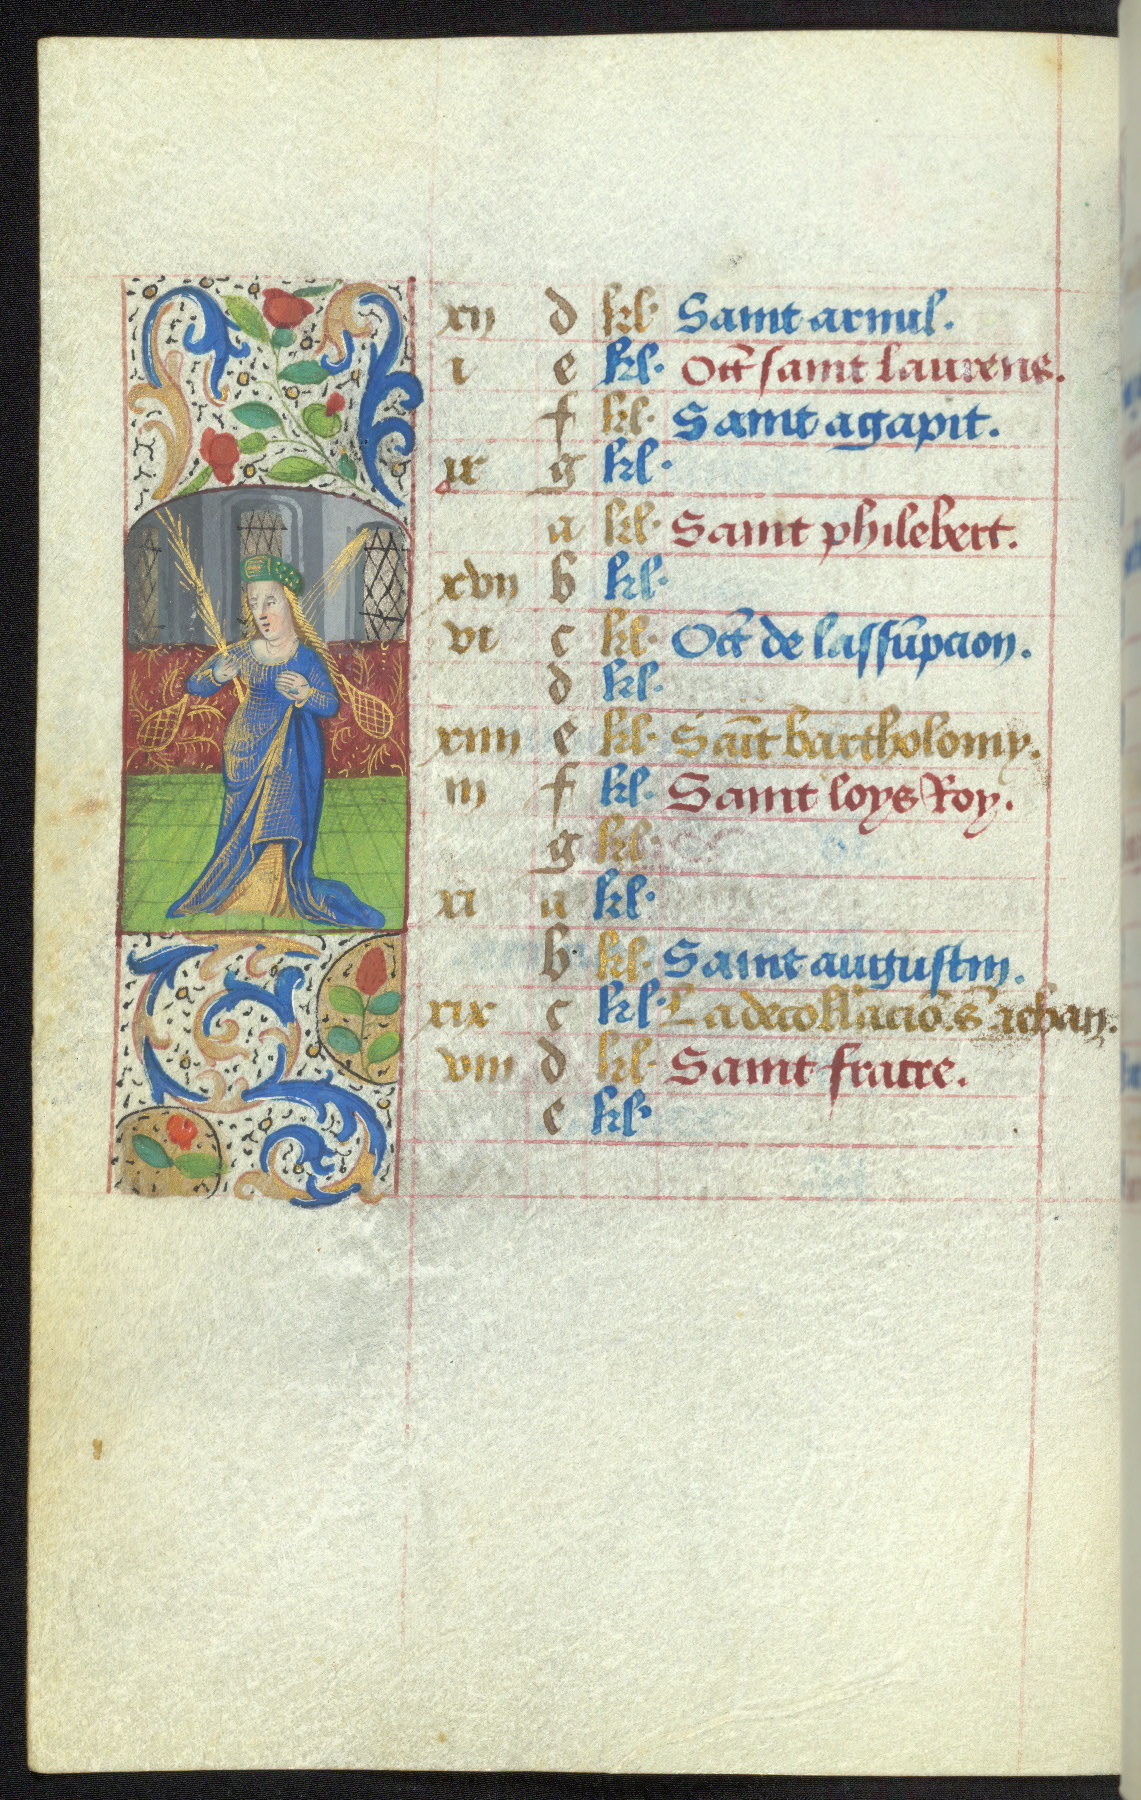 xii d kl. Saint arnul.
i e kl. Oct̄ saint laurens.
f kl. Saint agapit.
ix g kl.
a kl. Saint philebert.
xvii b kl.
vi c kl. Oct̄ de lassūpcion.
d kl.
xiiii e kl. Sāīt bartholomy.
iii f kl. Saint loys Roy.
g kl.
xi a kl.
b. kl. Saint augustin.
xix c kl. La decollacio. s̄. iehan.
viii d kl. Saint fiacre.
e kl.